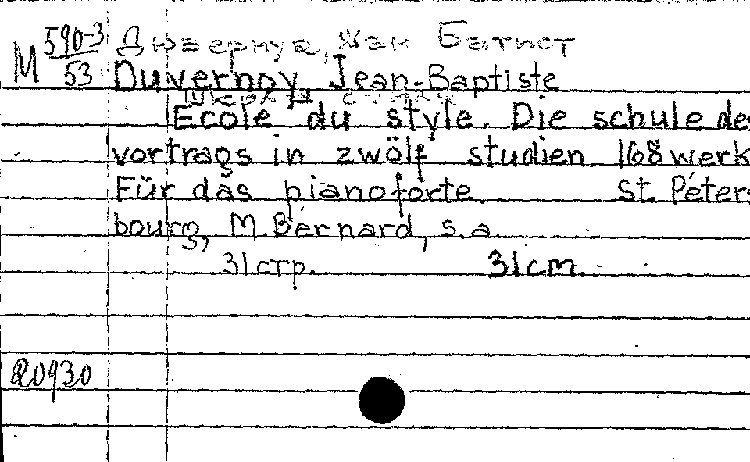 М 590-3/53
Дювернуа, Жан Батист
Duvernoy, Jean-Baptiste
École du style. Die schule de
vortrags in zwölf studien 168 werk
Für das pianoforte. St. Péters
bourg, M. Bernard, s.a.
31 стр. 31 cm.
20930